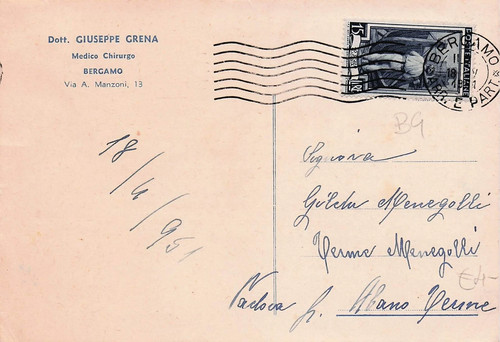 Dott. GIUSEPPE GRENA
Medico Chirurgo
BERGAMO
Via A. Manzoni, 13
15
LIRE
POSTE ITALIANE
BERGAMO
PART.
BG
18/4/951
Signora
Gilda Menegolli
Terme Menegolli
€4-
Padova Abano Terme